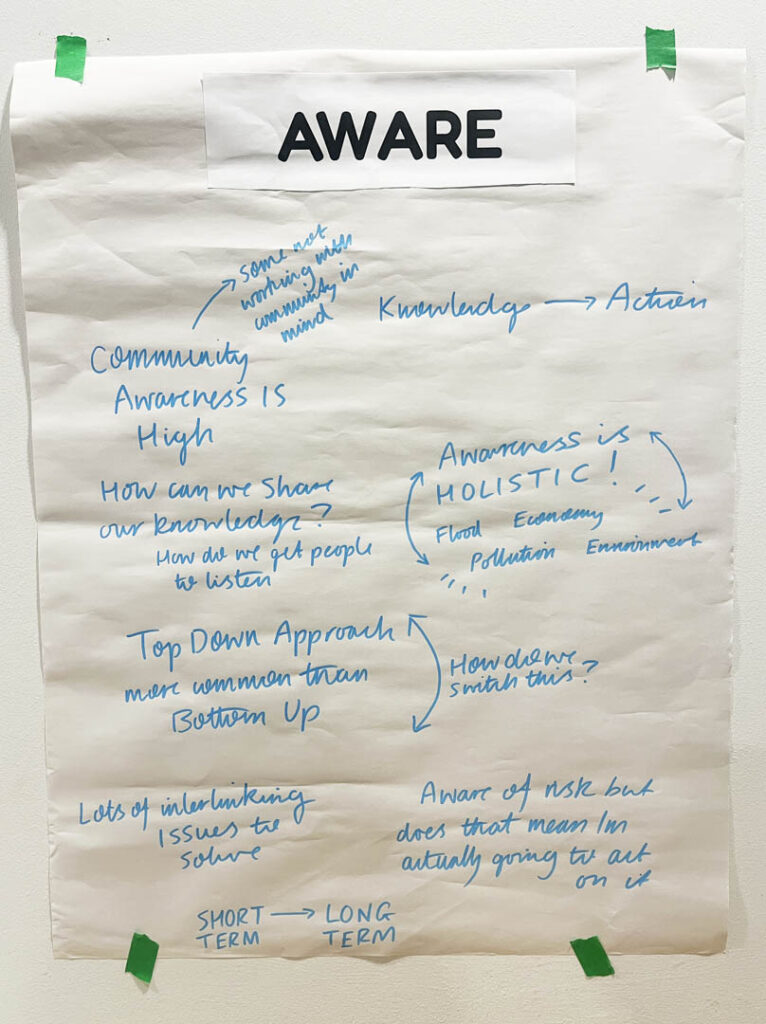 AWARE
Some not
working with
community in
mind
Knowledge → Action
Community
Awareness is
High
Awareness is
HOLISTIC!
Flood Economy
Pollution Environment
How can we share
our knowledge?
How do we get people
to listen
Top Down Approach
more common than
Bottom Up
How do we
switch this?
Lots of interlinking
issues to
solve
Aware of risk but
does that mean I'm
actually going to act
on it
SHORT → LONG
TERM TERM